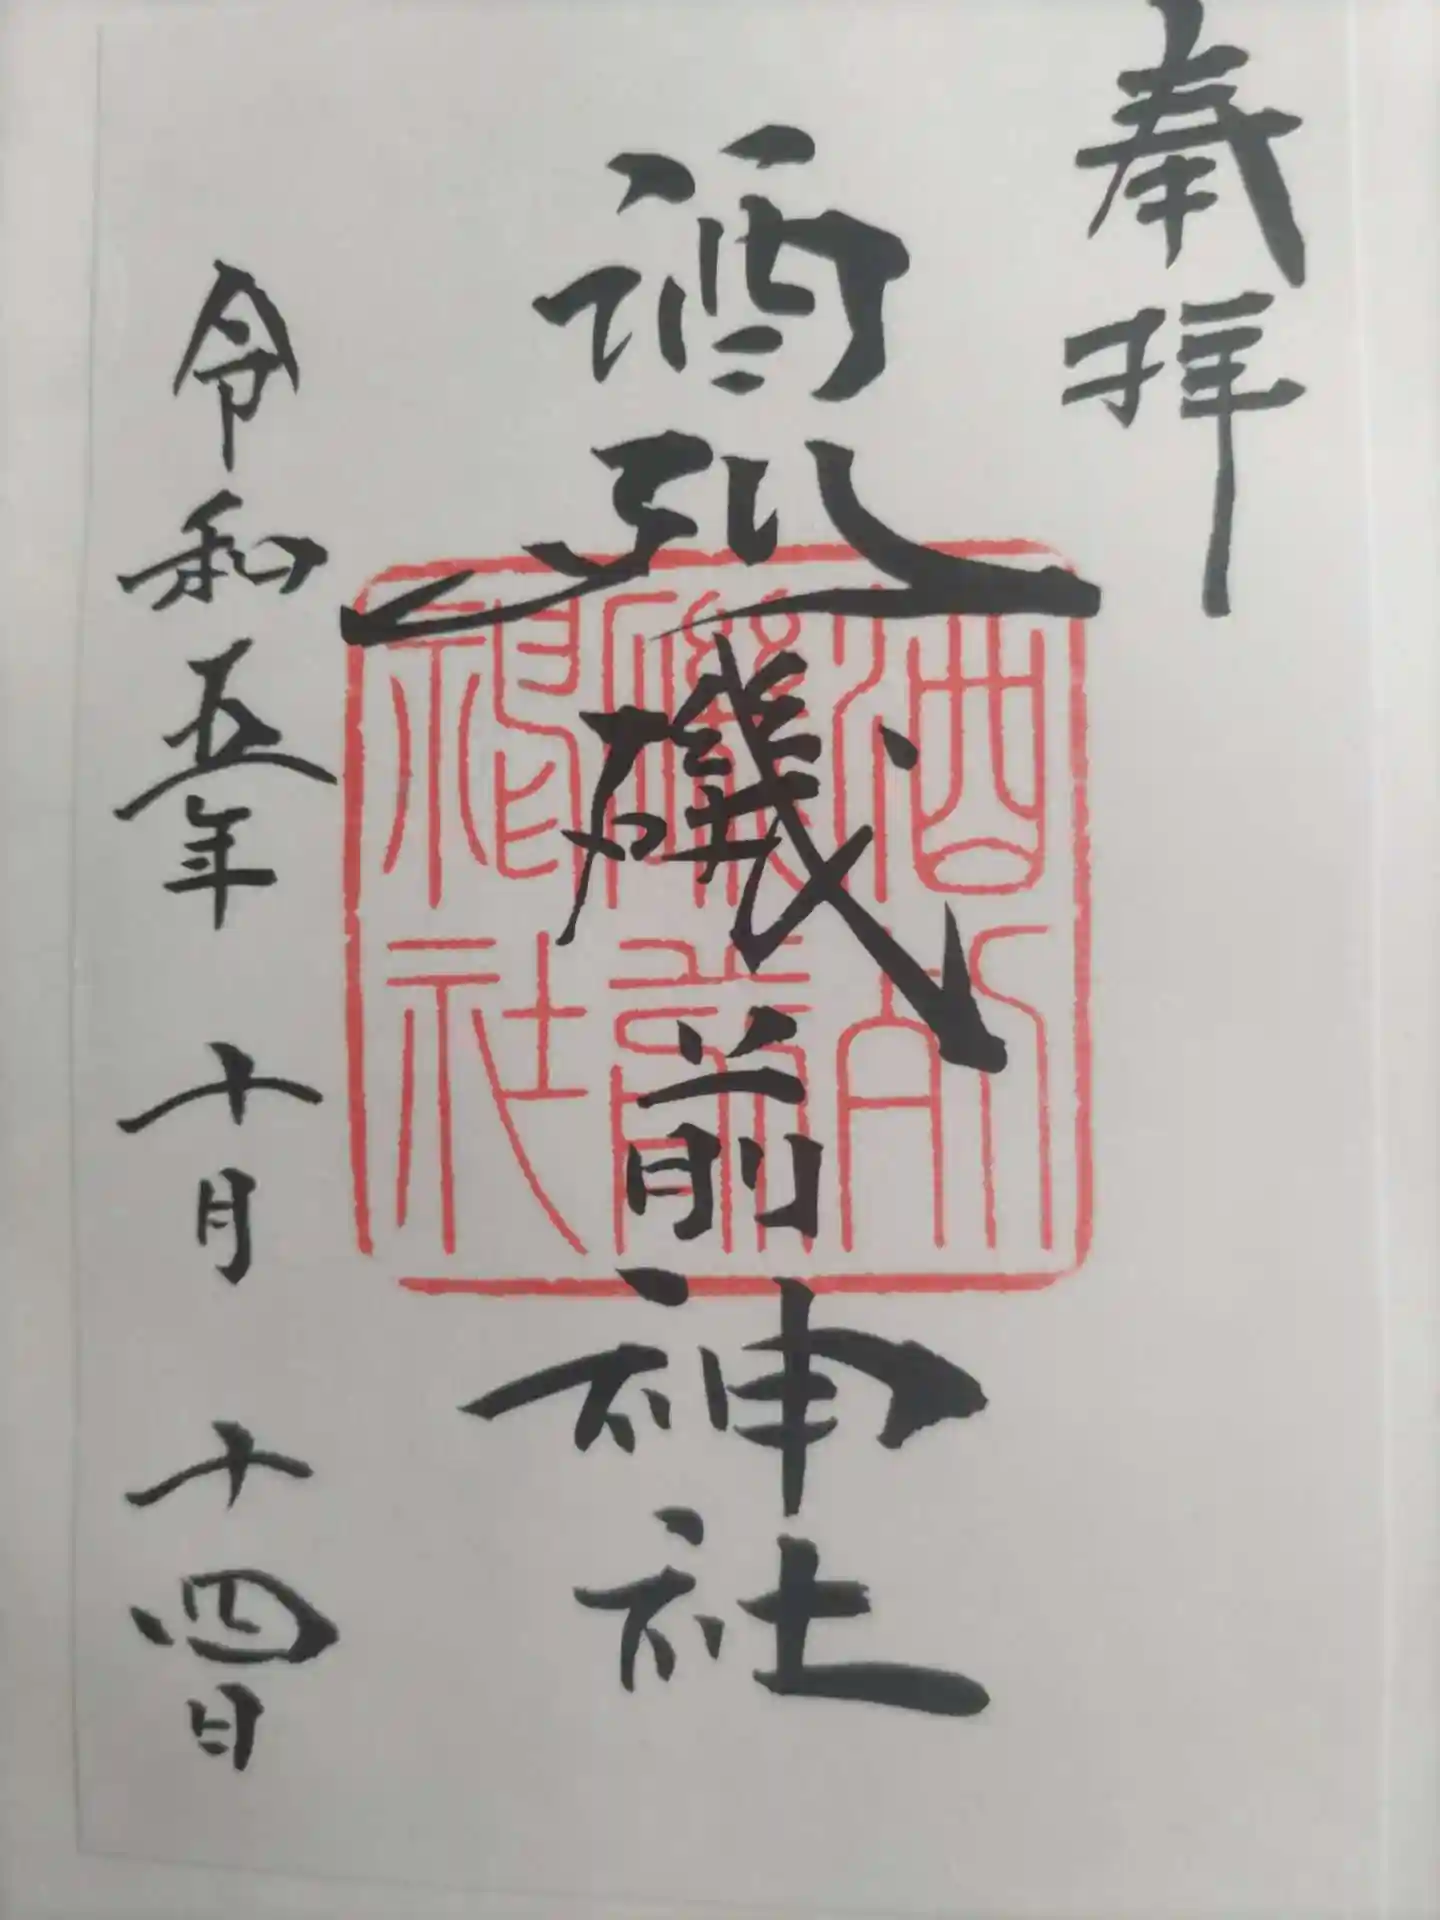 奉拝
酒列磯前神社
酒列
磯前
神社
令和五年 十月 十四日